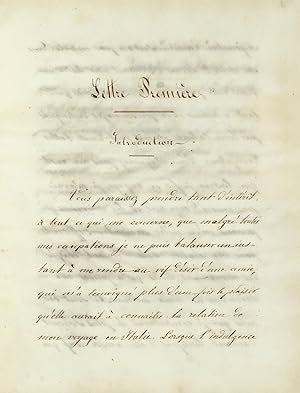 Lettre Première
Introduction
Vous paraissez prendre tant d'intérêt
à tout ce qui me concerne, que malgré toutes
mes occupations je ne puis balancer un ins-
tant à me rendre au vif désir d'une amie,
qui m'a témoigné plus d'une fois le plaisir
qu'elle aurait à connaître la relation de
mon voyage en Italie. Lorsque l'indulgence